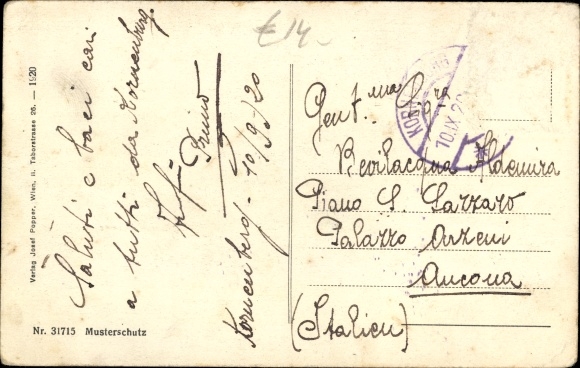 € 14.-
Saluti e baci cari
a tutti da Kornenberg.
Bruno
Kornenberg - 10/9/20
Gent.ma Sig.ra
Bevilacqua Almira
Piano S. Lazzaro
Palazzo
Ancona
(Italien)
KOR
10.IX.20
Verlag Josef Popper, Wien, II. Taborstrasse 26. — 1920
Nr. 31715 Musterschutz